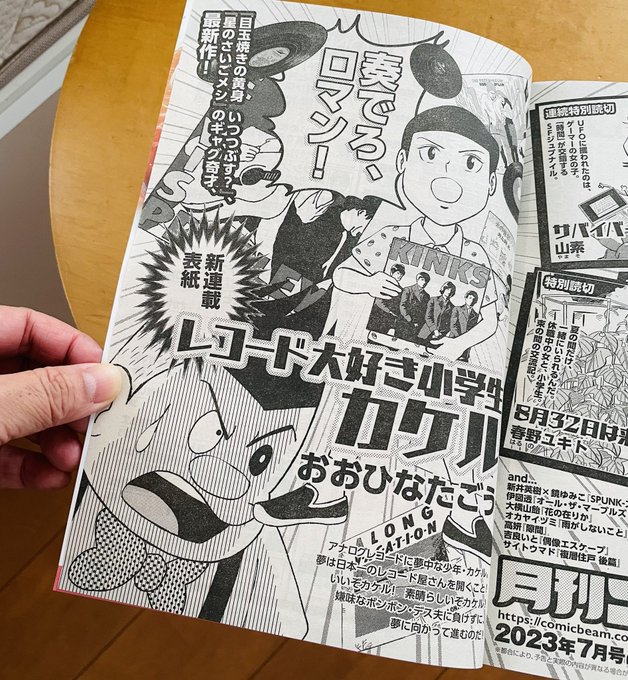 「目玉焼きの黄身 いつつぶす?」、
「星のさいごメシ」のギャグ奇才、
最新作!
奏でろ、
ロマン!
新連載
表紙
KINKS
レコード大好き小学生
カケル
おおひなたごう
ALONG
アナログレコードに夢中な少年・カケル。
夢は日本一のレコード屋さんを開くこと!
いいぞカケル! 素晴らしいぞカケル!
嫌味なボンボン・デス夫に負けずに、
夢に向かって進むのだ!
連続特別読切
UFOに攫われたのは、
ゲーマーの女の子。
「時間」が交錯する
SFジュブナイル。
サバイバ
山素
やま そ
特別読切
夏の間だけ、
一緒にいられるんだ。
休職中の女と、小学生。
束の間の交流記。
8月32日は
春野ユキト
はるの
and...
新井英樹×鏡ゆみこ『SPUNK-
伊図透『オール・ザ・マーブルズ
大横山飴『花の在りか』
オカヤイヅミ『雨がしないこと』
高妍『隙間』
吉良いと『偶像エスケープ』
サイトウマド『複層住戸 後篇』
月刊コ
https://comicbeam.co
2023年7月号
※都合により、予告と実際の内容が異なる場合が